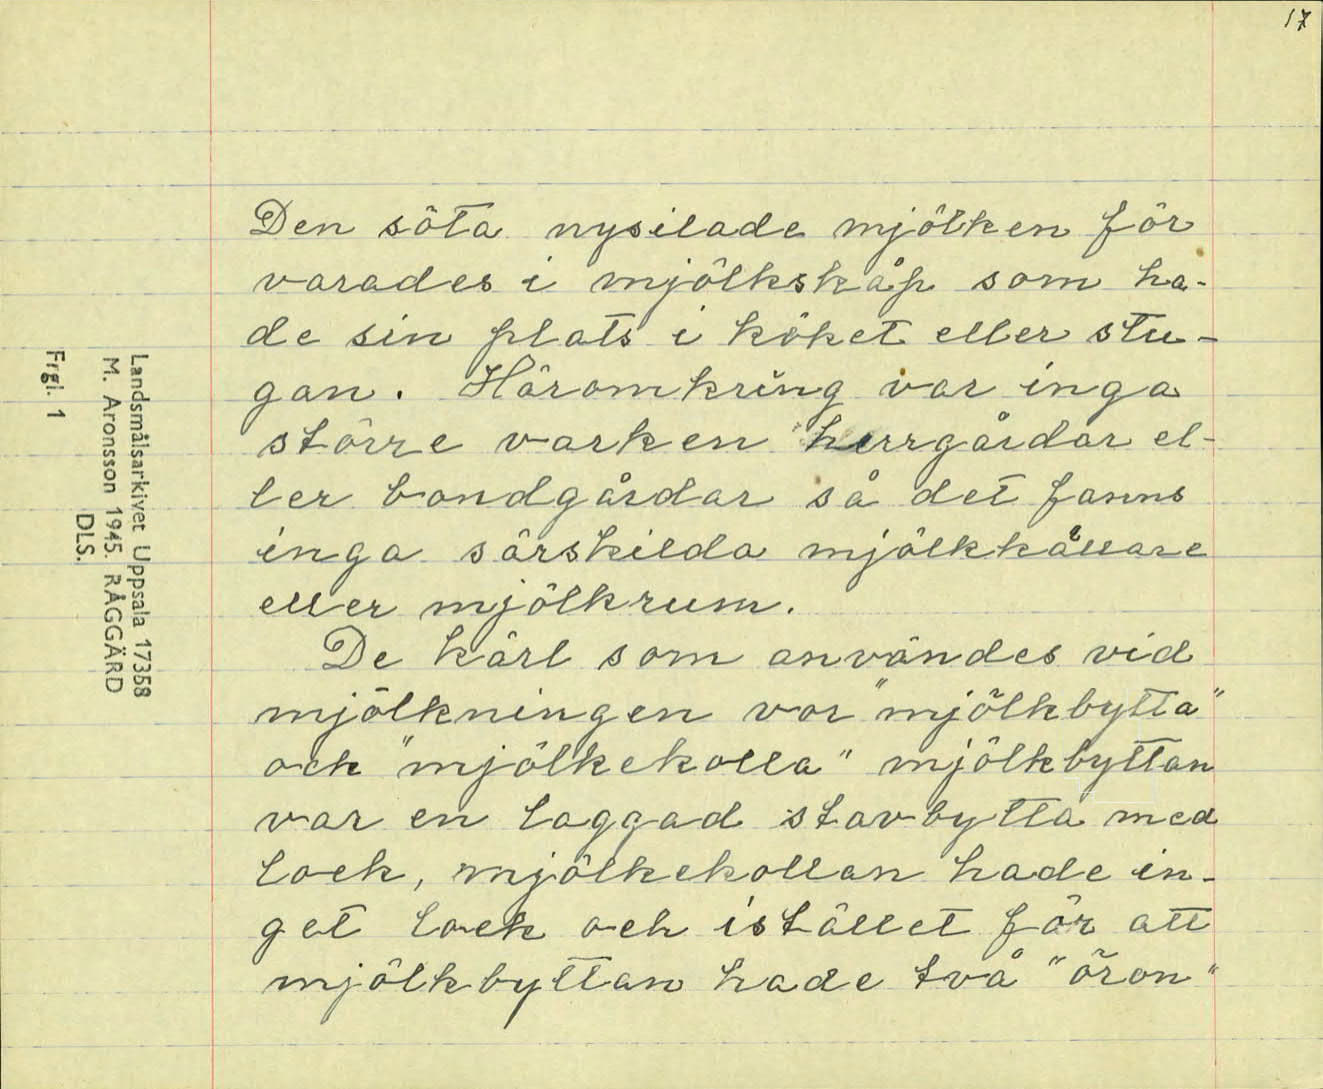 17
Den söta nysilade mjölken för
varades i mjölkskåp som ha-
de sin plats i köket eller stu-
gan. Häromkring var inga
större varken herrgårdar el-
ler bondgårdar så det fanns
inga särskilda mjölkkällare
eller mjölkrum.
De kärl som användes vid
mjölkningen var "mjölkbytta"
och "mjölkekolla" mjölkbyttan
var en laggad stavbytta med
lock, mjölkekollan hade in-
get lock och istället för att
mjölkbyttan hade två "öron"
Landsmålsarkivet Uppsala 17358
M. Aronsson 1945. RÅGGÄRD
DLS.
Frgl. 1